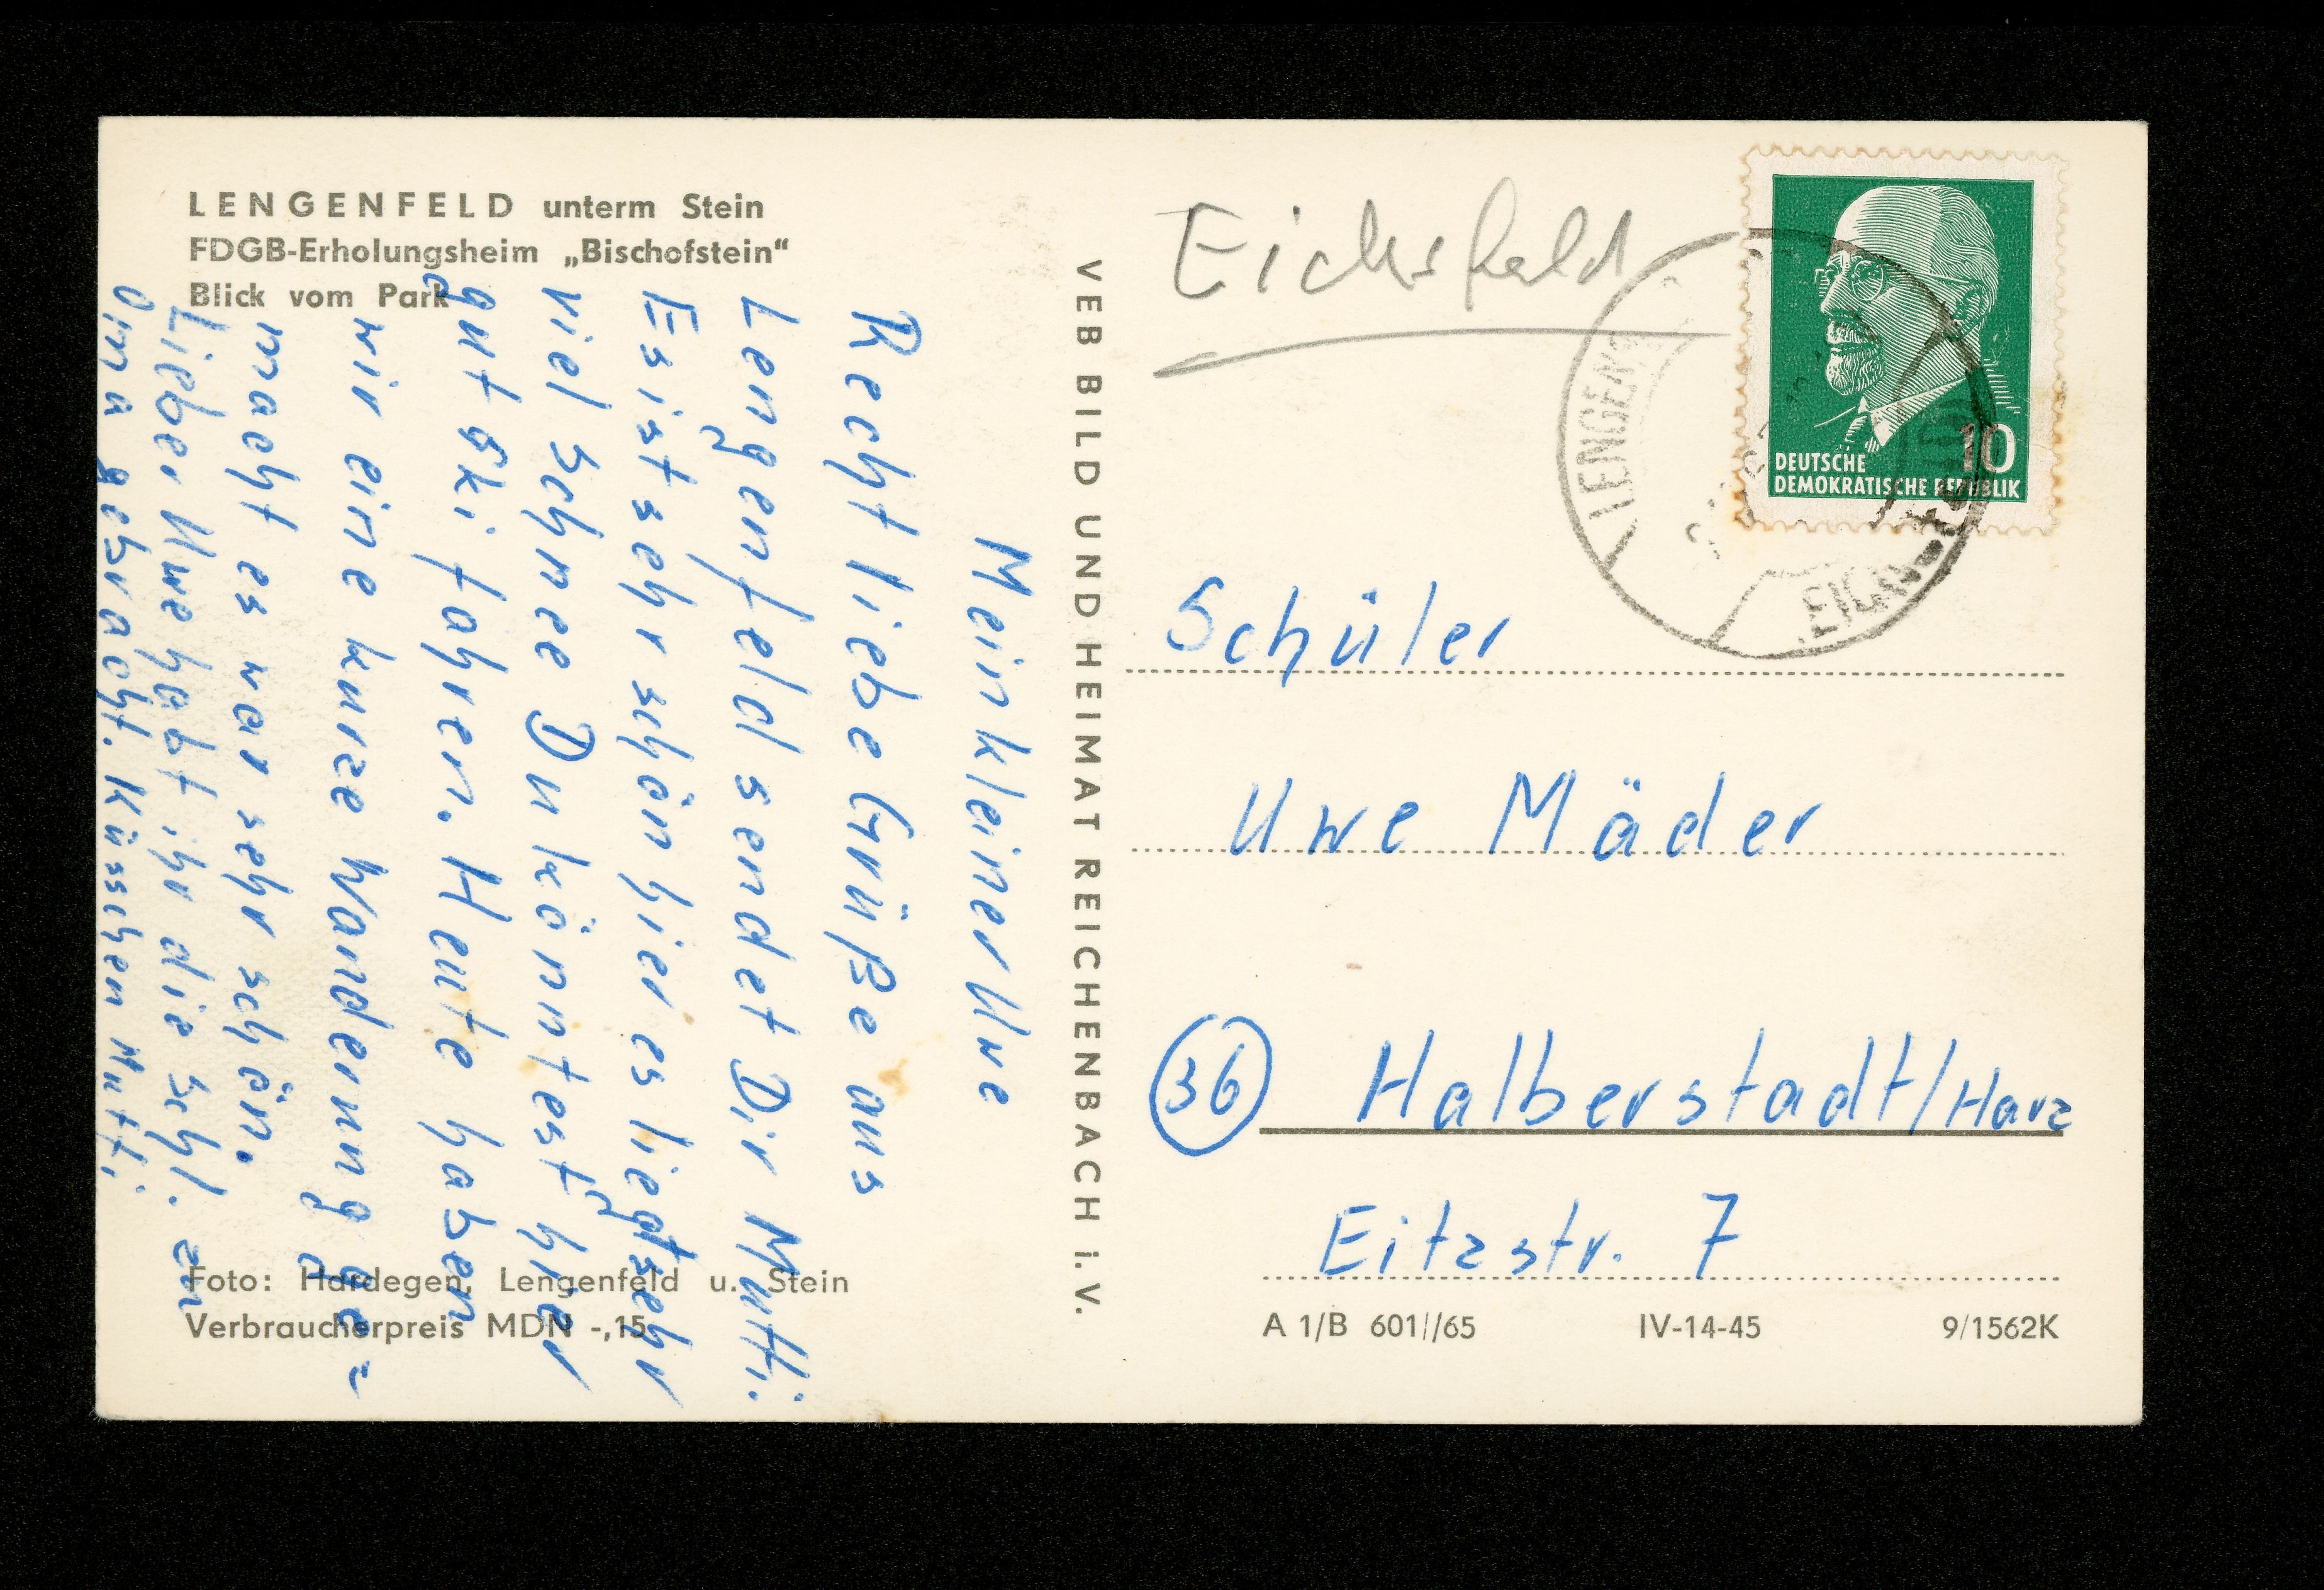 LENGENFELD unterm Stein
FDGB-Erholungsheim „Bischofstein“
Blick vom Park
Mein kleiner Uwe
Recht liebe Grüße aus
Lengenfeld sendet Dir Mutti.
Es ist sehr schön hier es liegt sehr
viel Schnee Du könntest hier
gut Ski fahren. Heute haben
wir eine kurze Wanderung ge=
macht es war sehr schön.
Lieber Uwe habt ihr die Schl. zu
Oma gebracht. Küsschen Mutti
Foto: Hardegen, Lengenfeld u. Stein
Verbraucherpreis MDN -,15
VEB BILD UND HEIMAT REICHENBACH i. V.
Eichsfeld
10
DEUTSCHE
DEMOKRATISCHE REPUBLIK
Schüler
Uwe Mäder
36 Halberstadt/Harz
Eitzstr. 7
A 1/B 601//65 IV-14-45 9/1562K